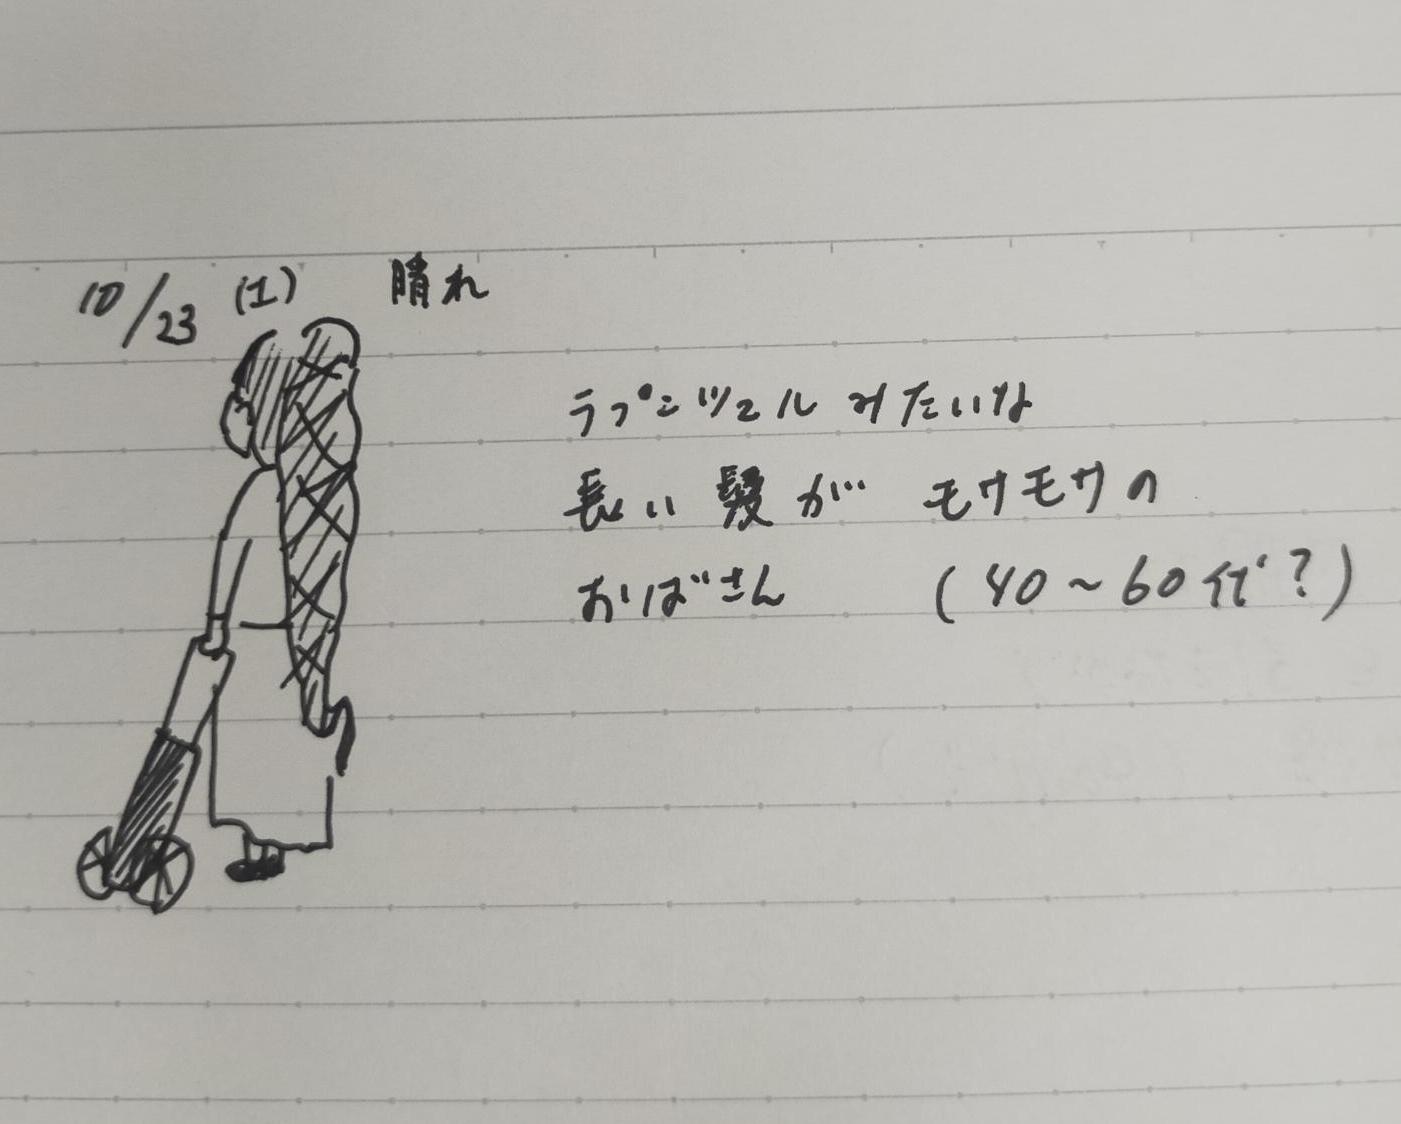 10/23 (1) 晴れ
ラプンツェルみたいな
長い髪がモサモサの
おばさん (40~60代?)